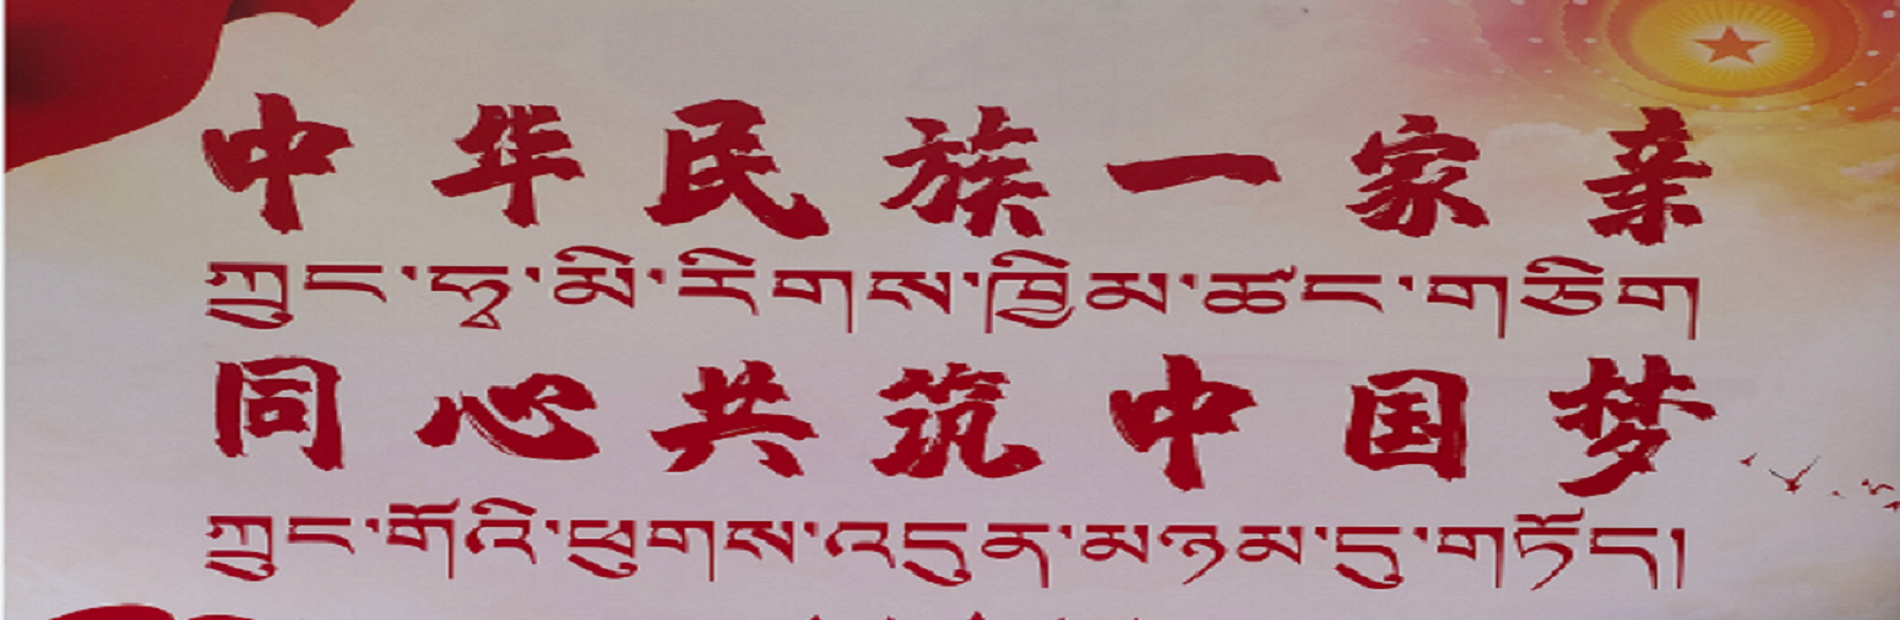 中华民族一家亲
ཀྲུང་ཧྭ་མི་རིགས་ཁྱིམ་ཚང་གཅིག
同心共筑中国梦
ཀྲུང་གོའི་ཕུགས་འདུན་མཉམ་དུ་གཏོད།